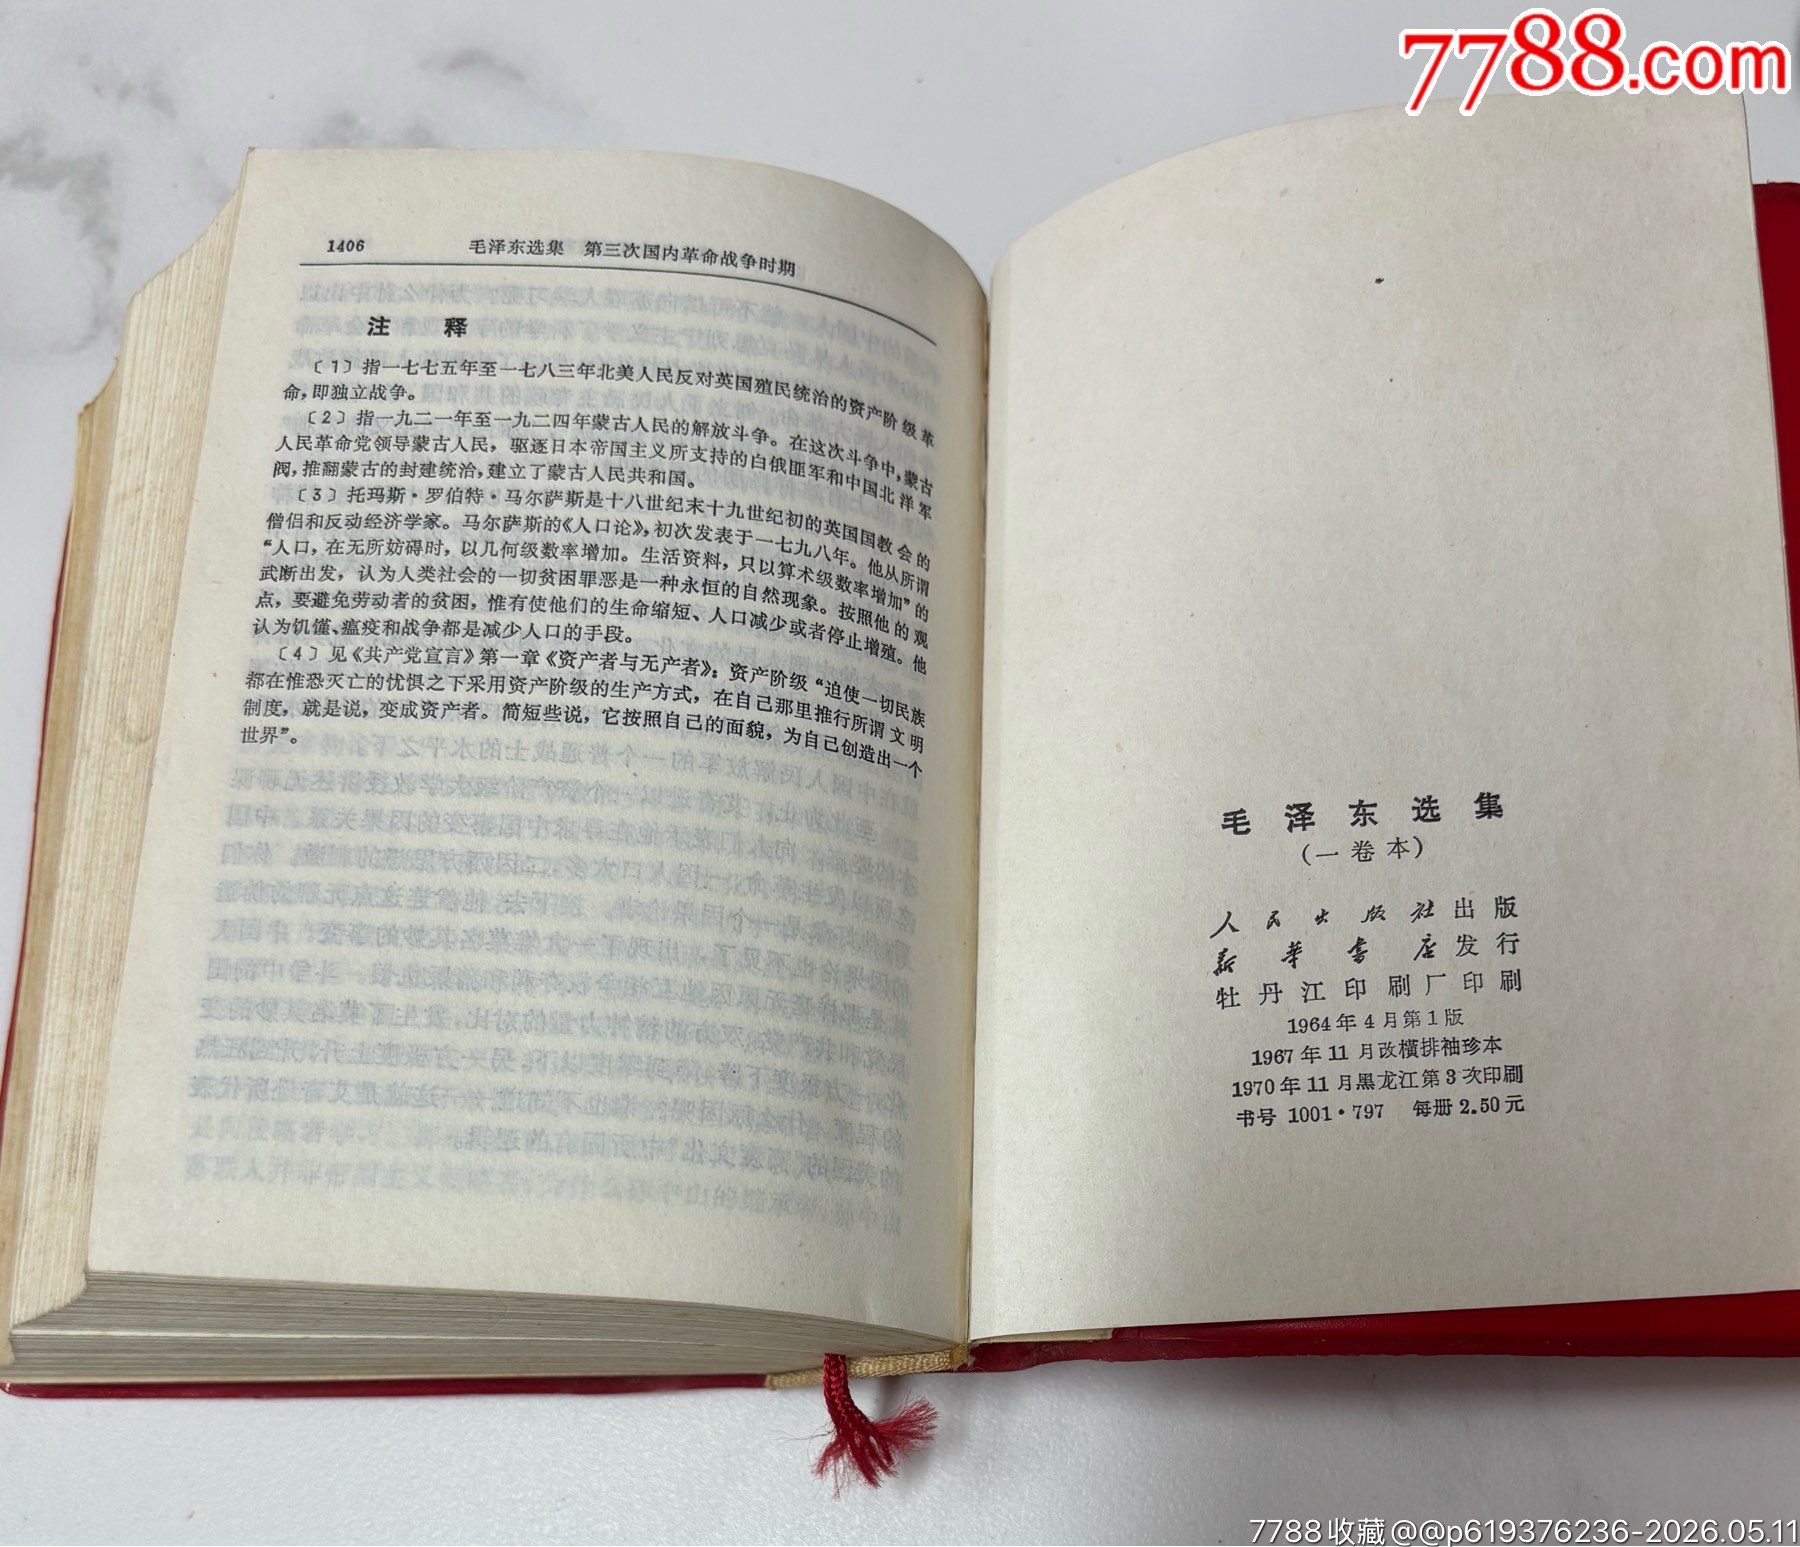 7788.com
1406 毛泽东选集 第三次国内革命战争时期
注 释
〔1〕指一七七五年至一七八三年北美人民反对英国殖民统治的资产阶级革
命，即独立战争。
〔2〕指一九二一年至一九二四年蒙古人民的解放斗争。在这次斗争中，蒙古
人民革命党领导蒙古人民，驱逐日本帝国主义所支持的白俄匪军和中国北洋军
阀，推翻蒙古的封建统治，建立了蒙古人民共和国。
〔3〕托玛斯·罗伯特·马尔萨斯是十八世纪末十九世纪初的英国国教会的
僧侣和反动经济学家。马尔萨斯的《人口论》，初次发表于一七九八年。他从所谓
“人口，在无所妨碍时，以几何级数率增加。生活资料，只以算术级数率增加”的
武断出发，认为人类社会的一切贫困罪恶是一种永恒的自然现象。按照他的观
点，要避免劳动者的贫困，惟有使他们的生命缩短、人口减少或者停止增殖。他
认为饥馑、瘟疫和战争都是减少人口的手段。
〔4〕见《共产党宣言》第一章《资产者与无产者》：资产阶级“迫使一切民族
都在惟恐灭亡的忧惧之下采用资产阶级的生产方式，在自己那里推行所谓文明
制度，就是说，变成资产者。简短些说，它按照自己的面貌，为自己创造出一个
世界”。
毛泽东选集
（一卷本）
人民出版社出版
新华书店发行
牡丹江印刷厂印刷
1964年4月第1版
1967年11月改横排袖珍本
1970年11月黑龙江第3次印刷
书号 1001·797 每册2.50元
7788收藏@@p619376236-2026.05.11